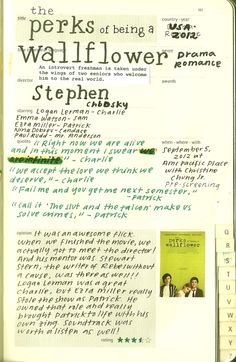 the
title
perks of being a
wallflower
country - year
USA -
2012
Drama
Romance
An introvert freshman is taken under
the wings of two seniors who welcome
him to the real world.
director
Stephen
Chbosky
starring
Logan Lerman - Charlie
Emma Watson - Sam
Ezra Miller - Patrick
Nina Dobrev - Candace
Paul Rudd - Mr. Anderson
quotes
"Right now we are alive
and in this moment I swear we
are infinite" - Charlie
"We accept the love we think we
deserve," - Charlie
"Fail me and you get me next semester,"
- Patrick
"Call it 'The Slut and the Falcon' make us
solve crimes," - Patrick
when - where - with
September 5,
2012 at
Pacific Place
with Christine
Chung Jr.
Pre-screening
opinion
It was an awesome flick.
When we finished the movie, we
actually got to meet the director!
And his mentor was Stewart
Stern, the writer of Rebel without
a cause, was there as well!!
Logan Lerman was a great
Charlie, but Ezra Miller really
stole the show as Patrick. He
owned that role and really
brought Patrick to life with his
own zing. Soundtrack was
worth a listen as well!
the perks of being a
wallflower
rating ★★★
Q
R
S
T
U
V
W
X
Y